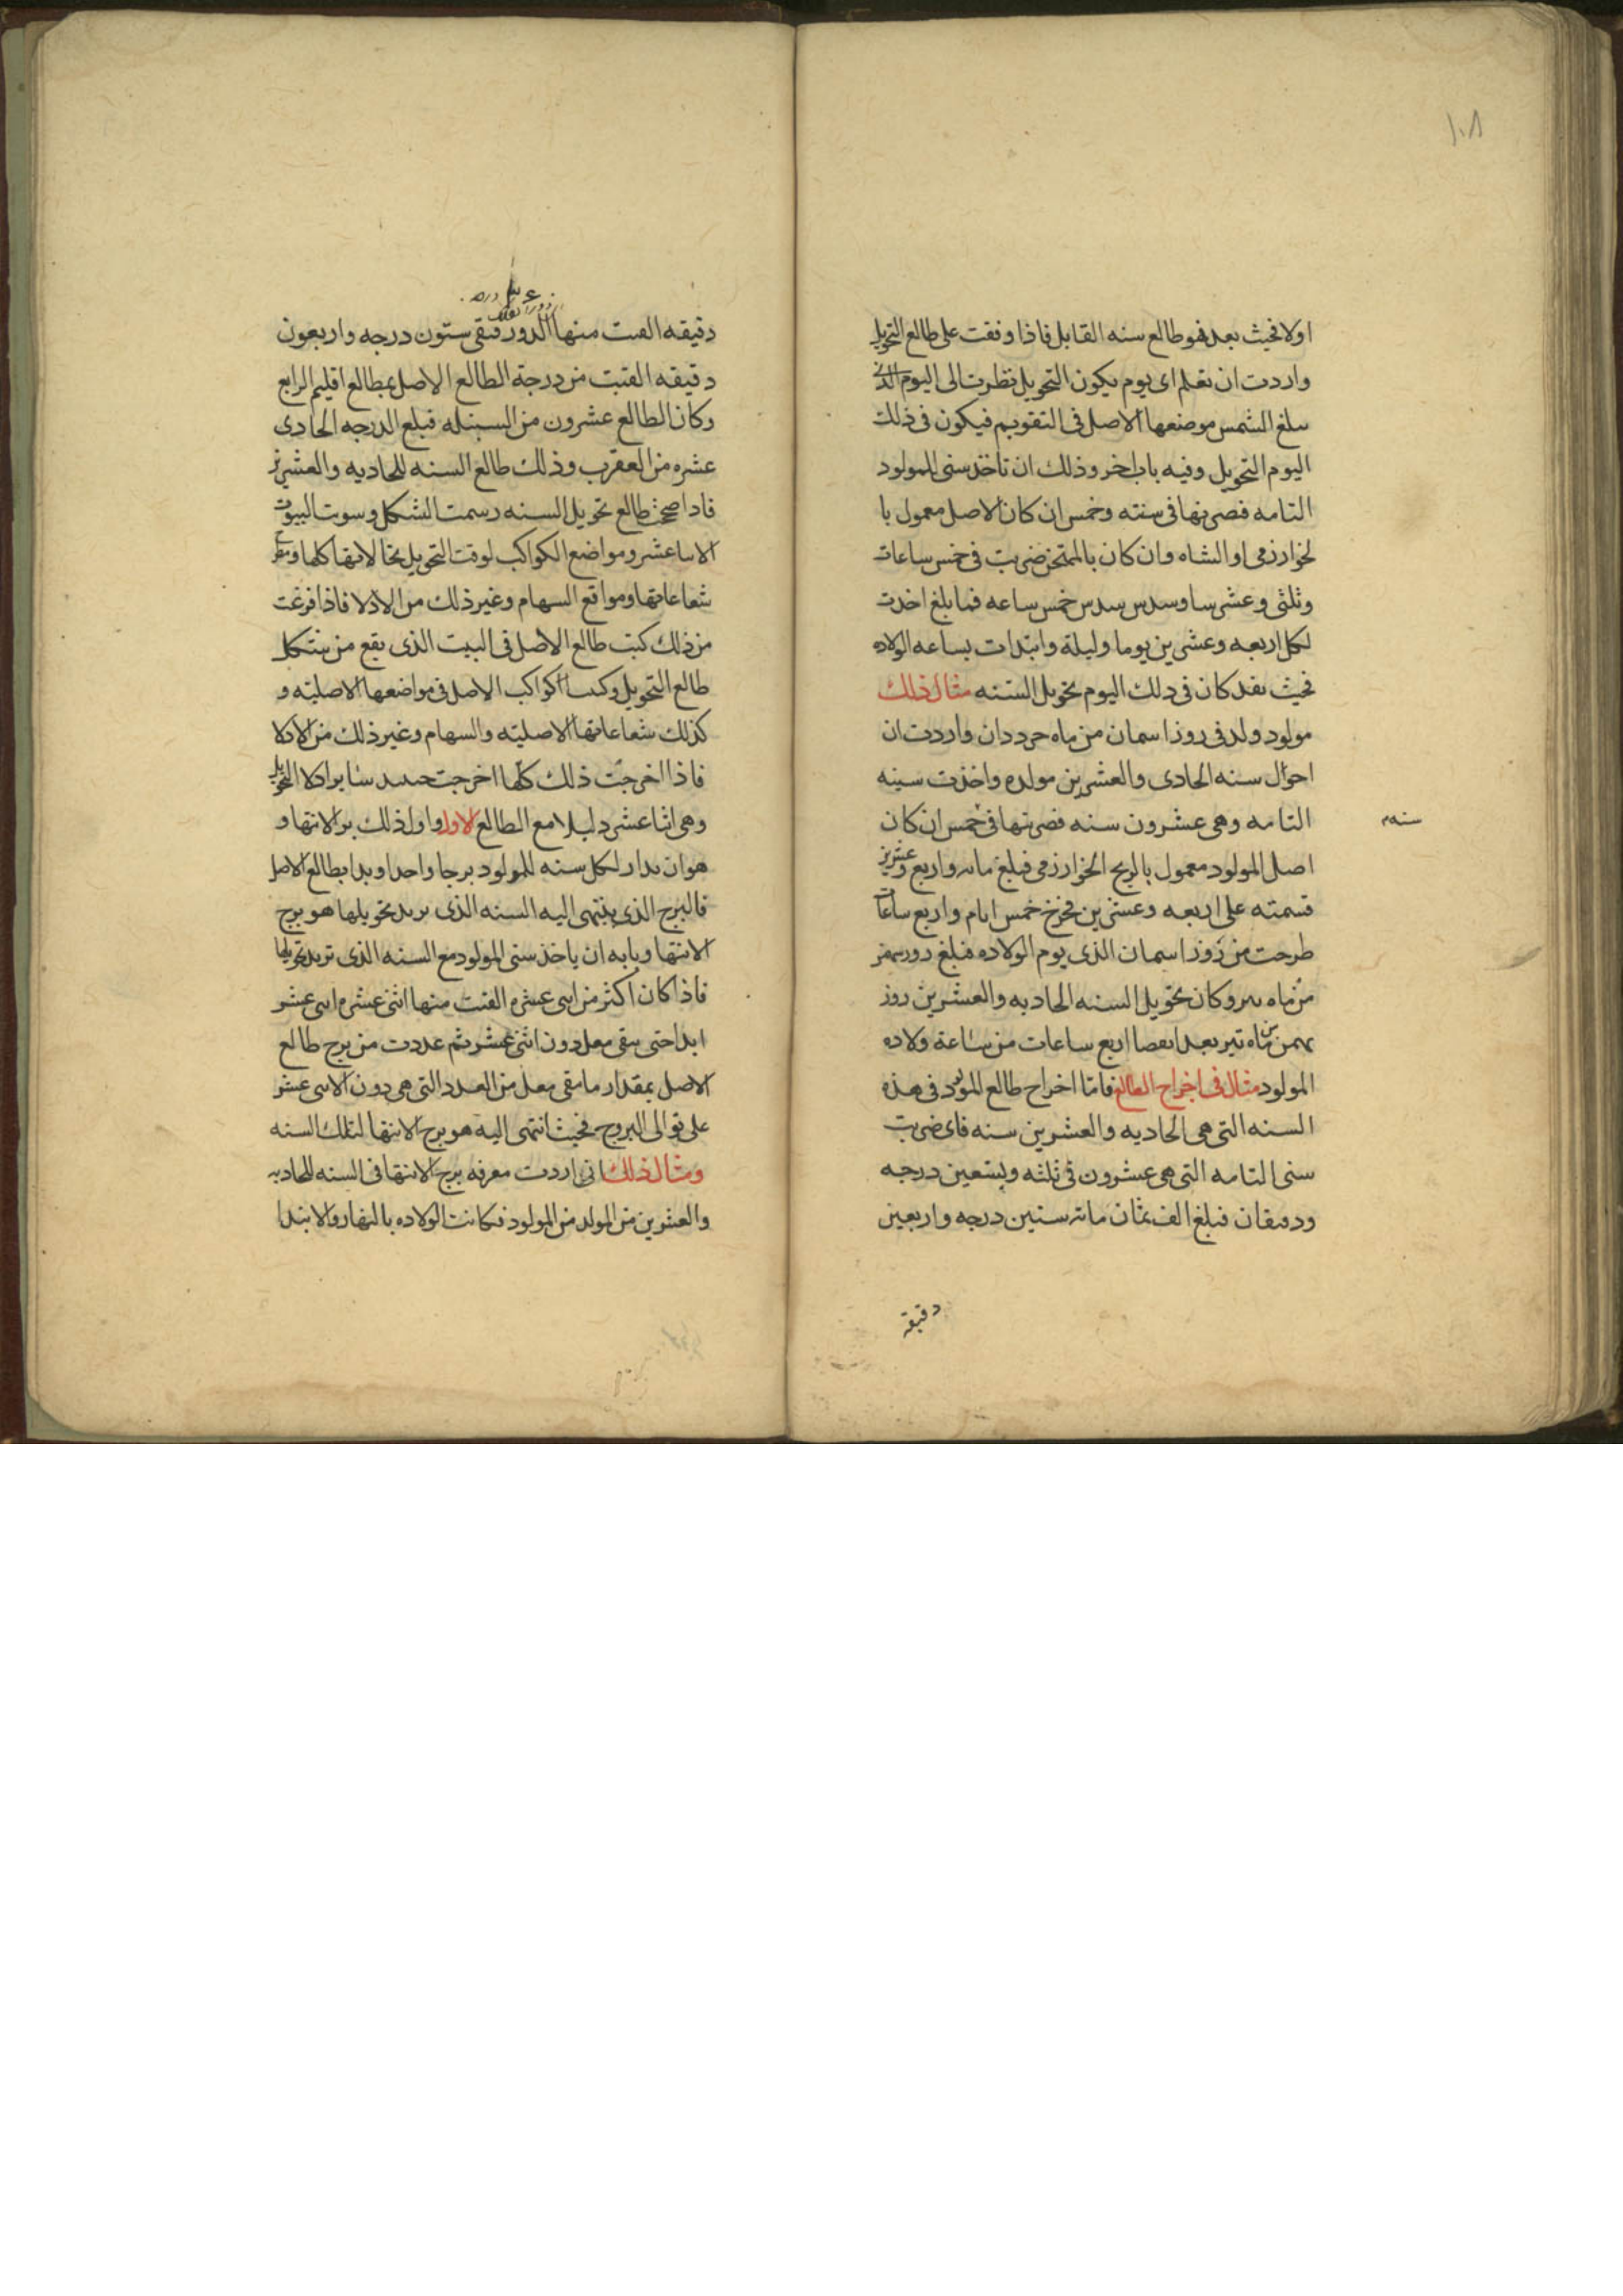 ١٠٨
اولا فحيث بعد فهو طالع سنه القابل فاذا وفقت على طالع التحويل
واردت ان تعلم اى يوم يكون التحويل نظرت الى اليوم الذى
سلغ الشمس موضعها الاصل فى التقويم فيكون فى ذلك
اليوم التحويل وفيه باب اخر وذلك ان تاخذ سنى المولود
التامه فضربتها فى سته وخمس ان كان الاصل معمول با
لخوارزمى او الشاه وان كان بالممتحن ضربت فى خمس ساعات
وثلثى وعشر سا وسدس سدس خمس ساعه فما بلغ اخذت
لكل اربعه وعشرين يوما وليلة وابتدات بساعه الولاده
فحيث نفد كان فى ذلك اليوم تحويل السنه مثال ذلك
مولود ولد فى روز اسمان من ماه حرددان واردت ان
احوال سنه الحادى والعشرين من مولده واخذت سينه
التامه وهى عشرون سنه فضربتها فى خمس ان كان
سنه
اصل المولود معمول بالزيج الخوارزمى فبلغ مائه واربع وعشرين
قسمته على اربعه وعشرين فخرج خمس ايام واربع ساعات
طرحت من روز اسمان الذى يوم الولاده فبلغ
من ماه وكان تحويل السنه الحاديه والعشرين روز
بهمن من ماه تير بعد انقضا اربع ساعات من ساعة ولاده
المولود مثال فى اخراج الطالع فاما اخراج طالع المولود فى هذه
السنه التى هى الحاديه والعشرين سنه فاى ضربت
سنى التامه التى هى عشرون فى ثلثه وتسعين درجه
ودقيقان فبلغ الف ثمان مائه ستين درجه واربعين
دقيقة
دقيقه القيت منها الدور فبقى ستون درجه واربعون
دقيقه القيت من درجة الطالع الاصل بمطالع اقليم الرابع
وكان الطالع عشرون من السنبله فبلغ الدرجه الحادى
عشره من العقرب وذلك طالع السنه الحاديه والعشرين
فاذا صححت طالع تحويل السنه رسمت الشكل وسوت البيوت
الاثنا عشر ومواضع الكواكب لوقت التحويل بحالاتها كلها ومطرح
شعاعاتها ومواقع السهام وغير ذلك من الادلا فاذا فرغت
من ذلك كتبت طالع الاصل فى البيت الذى يقع من شكل
طالع التحويل وكتبت كواكب الاصل فى مواضعها الاصليه و
كذلك شعاعاتها الاصليه والسهام وغير ذلك من الادلا
فاذا اخرجت ذلك كلها اخرجت حينئذ ساير ادلا التحويل
وهى اثنا عشر دليلا مع الطالع الاول واول ذلك برج الانتها و
هو ان تدار لكل سنه للمولود برجا واحدا ويبدا بطالع الاصل
فالبرج الذى ينتهى اليه السنه الذى تريد تحويلها هو برج
الانتها وبابه ان ياخذ سنى المولود مع السنه الذى تريد تحويلها
فاذا كان اكثر من اثنى عشره القيت منها اثنى عشره اثنى عشر
ابدا حتى يبقى معك دون اثنى عشر ثم عددت من برج طالع
الاصل بمقدار ما بقى معك من العدد التى هى دون الاثنى عشر
على توالى البروج فحيث انتهى اليه هو برج الانتها لتلك السنه
ومثال ذلك انى اردت معرفه برج الانتها فى السنه الحاديه
والعشرين من المولد من المولود فكانت الولاده بالنهار والابتدا